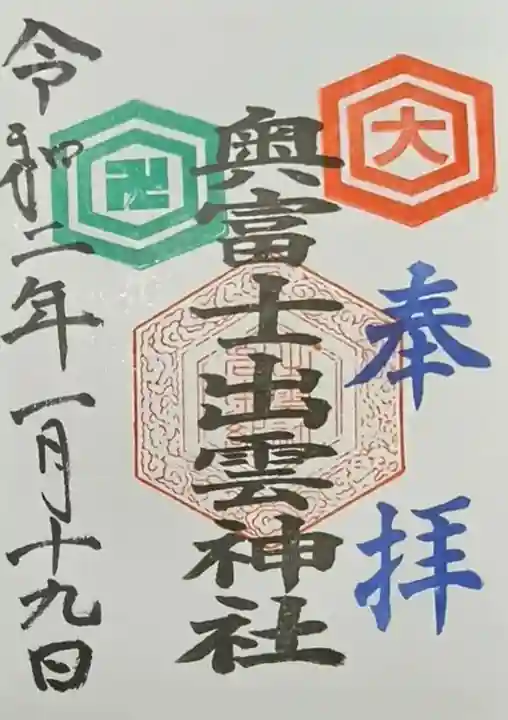 奉拝
大
卍
奥富士出雲神社
令和二年一月十九日